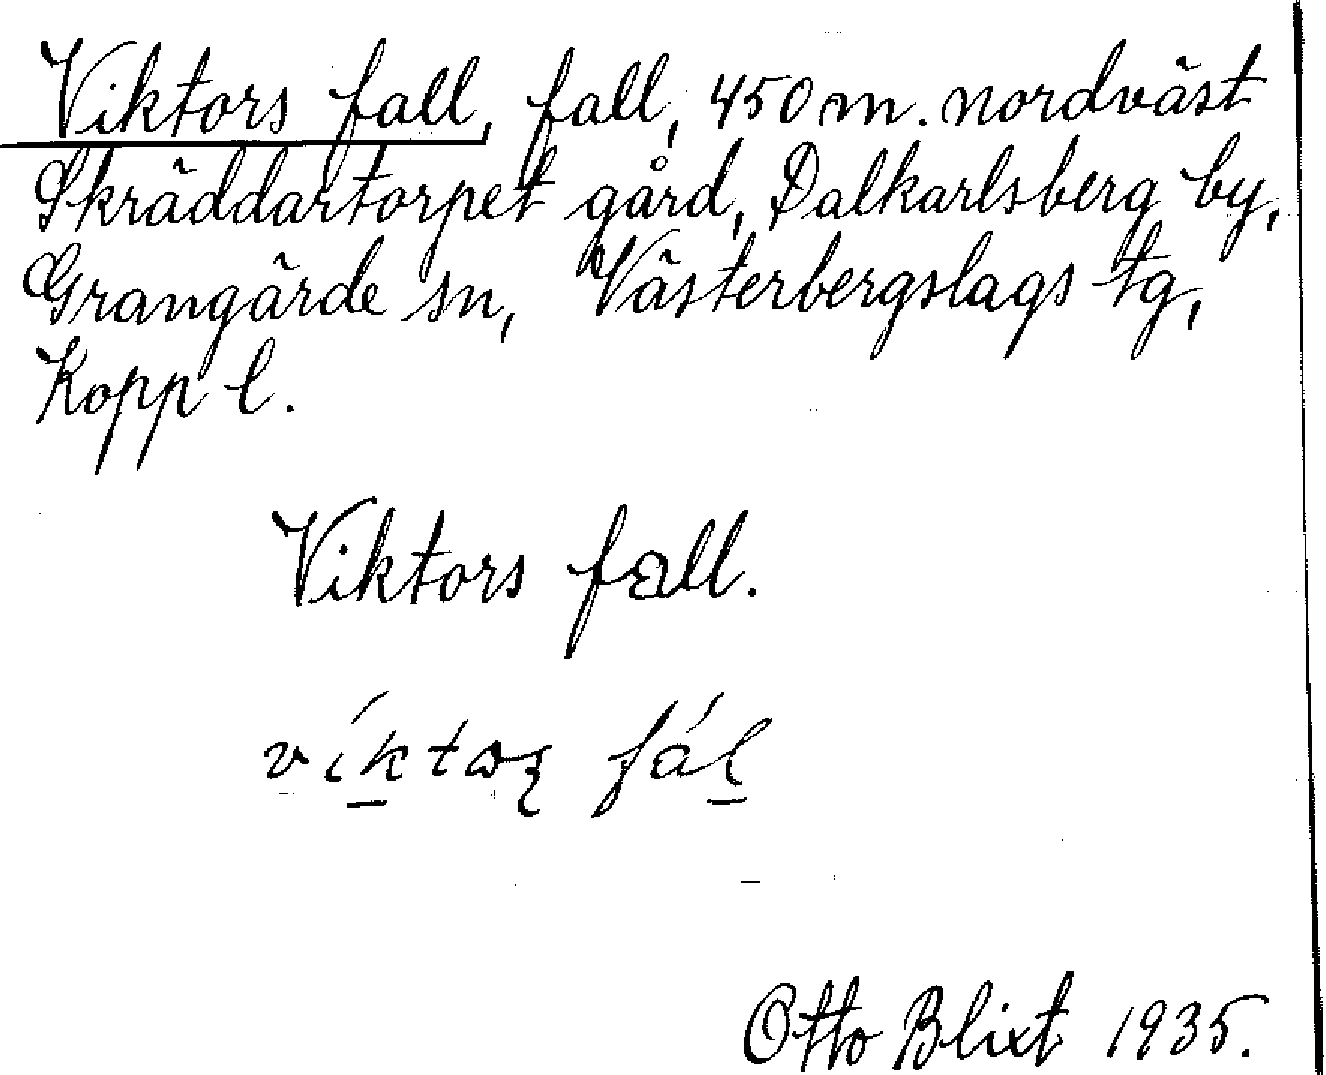 Viktors fall, fall, 450 m. nordväst
Skräddartorpet gård, Dalkarlsberg by,
Grangärde sn, Västerbergslags tg,
Kopp l.
Viktors fall.
víktoʂ fál
Otto Blixt 1935.